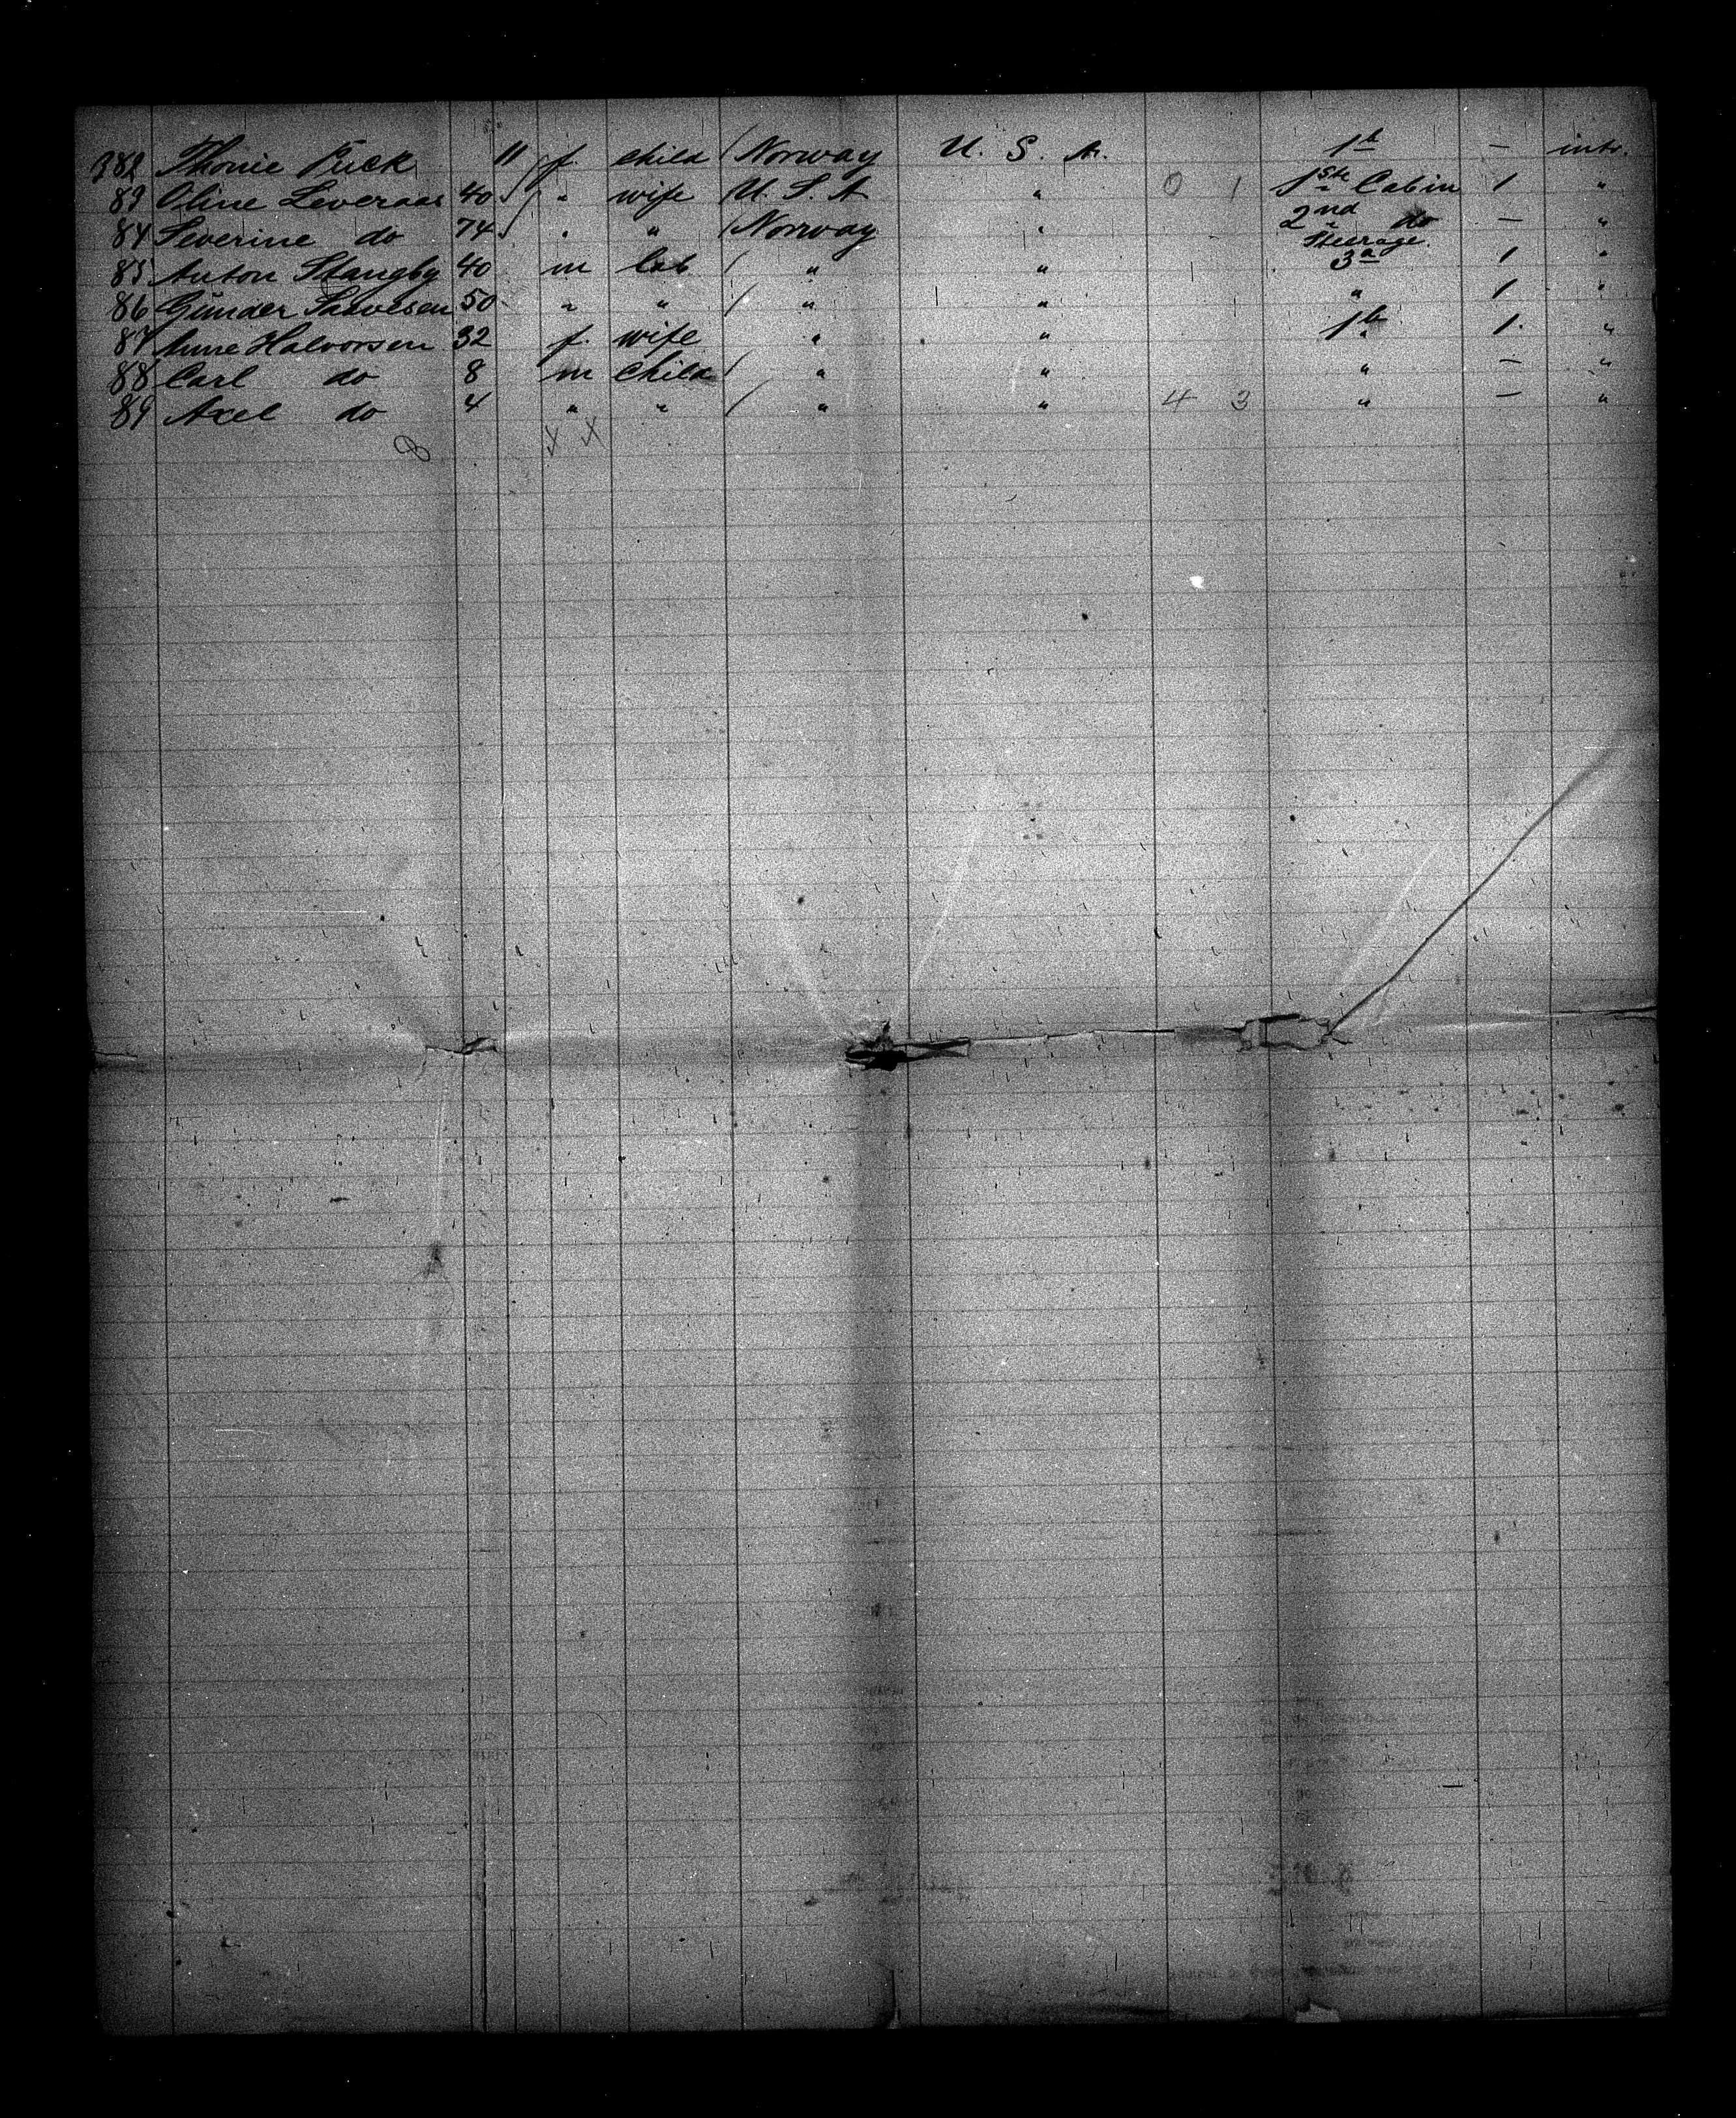 382 Thonie Puck 11 f. child Norway U. S. A. 1b — intr.
83 Oline Leveraas 40 " wife U. S. A " 0 1 1ste Cabin 1 "
84 Severine do 74 " " Norway " 2nd do — "
Steerage.
85 Anton Stangby 40 m lab " " 3a 1 "
86 Gunder Salvesen 50 " " " " " 1 "
87 Anne Halvorsen 32 f. wife " " 1b 1 "
88 Carl do 8 m child " " " — "
89 Axel do 4 " " " " 4 3 " — "
8 X X